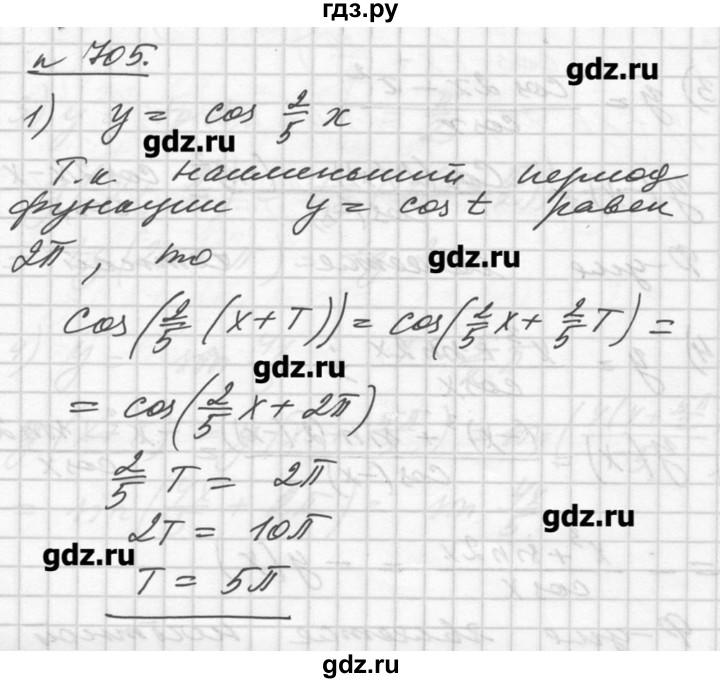 гдз.ру
n 705.
gdz.ru
1) y = cos 2/5 x
gdz.ru
Т.к наименьший период
функции y = cos t равен
2π, то
gdz.ru
cos(2/5 (x+T)) = cos(2/5 x + 2/5 T) =
gdz.ru
= cos(2/5 x + 2π)
2/5 T = 2π
gdz.ru
2T = 10π
gdz.ru
T = 5π
gdz.ru